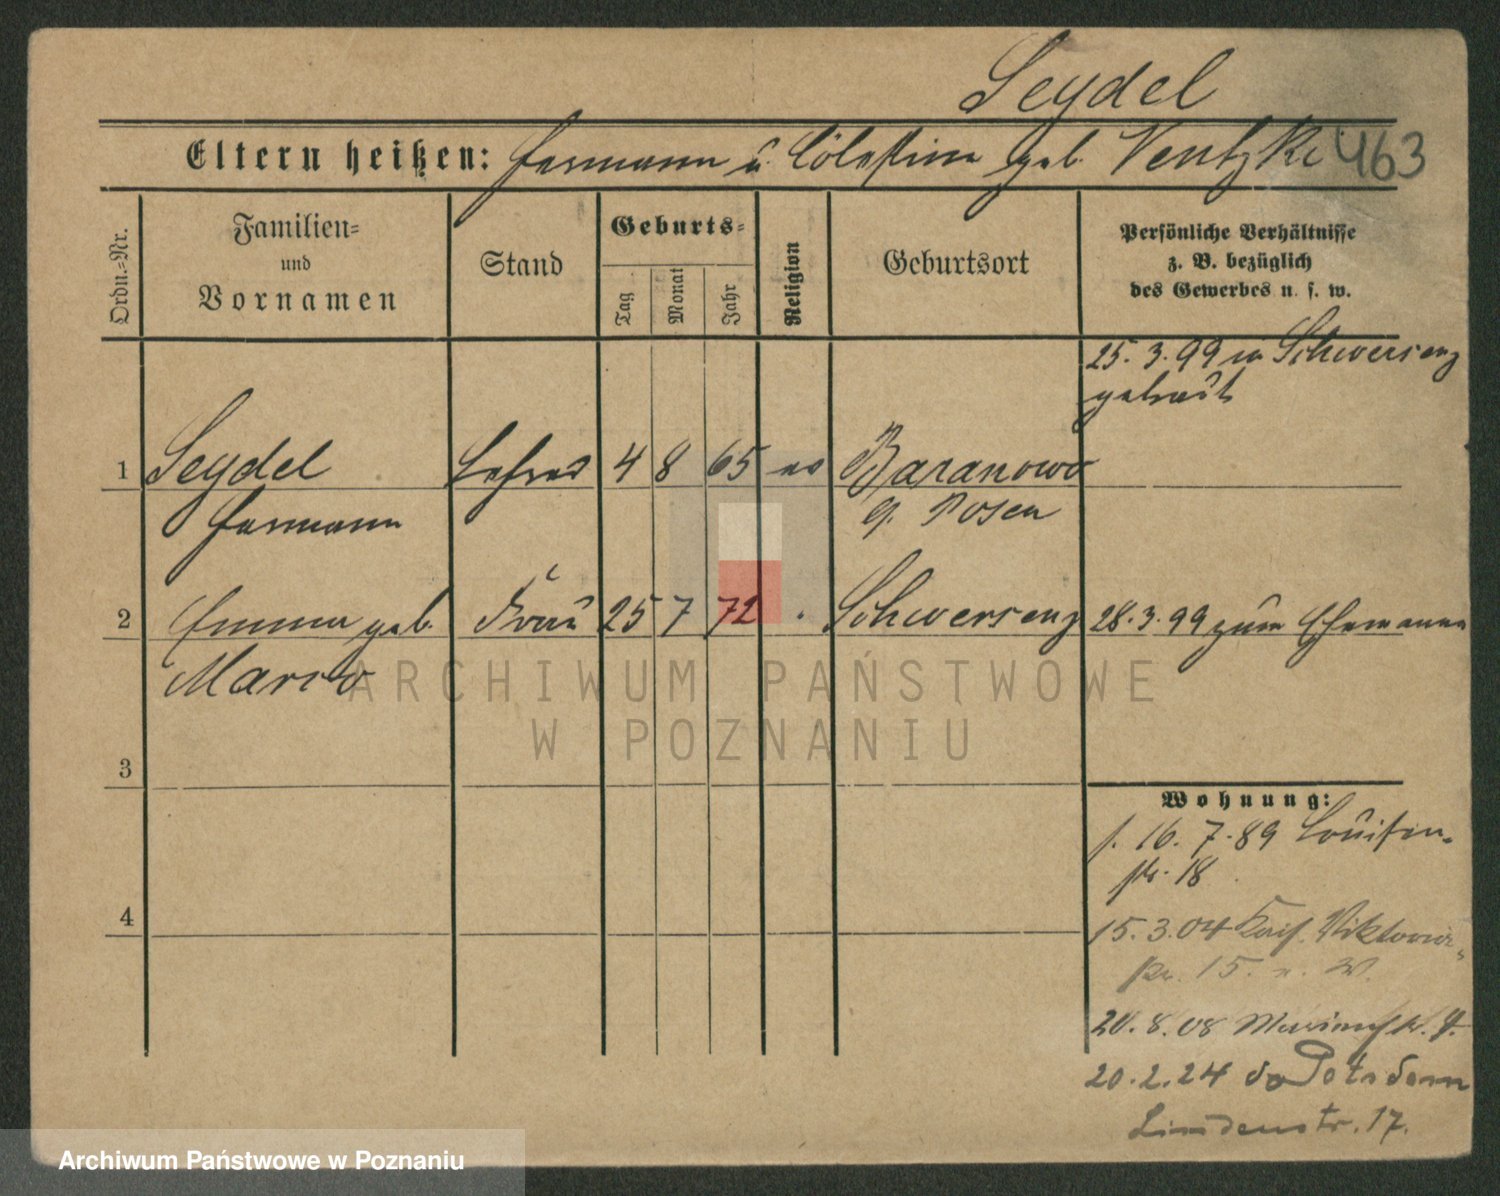 Seydel
Eltern heißen: Hermann u. Cölestine geb. Ventzki
463
Ordn.=Nr.
Familien=
und
Vornamen
Stand
Geburts=
Tag
Monat
Jahr
Religion
Geburtsort
Persönliche Verhältnisse
z. B. bezüglich
des Gewerbes u. s. w.
25. 3. 99 in Schwersenz
getraut
1 Seydel Lehrer 4 8 65 ev Baranowo
Hermann Posen
2 Emma geb. Frau 25 7 72 Schwersenz 28. 3. 99 zum Ehemann
3
4
Wohnung:
16. 7. 89 Louisen-
str. 18
15. 3. 04 Kais. Viktoria-
str. 15.
20. 8. 08
20. 2. 24 Potsdam
Lindenstr. 17.
ARCHIWUM PAŃSTWOWE
W POZNANIU
Archiwum Państwowe w Poznaniu